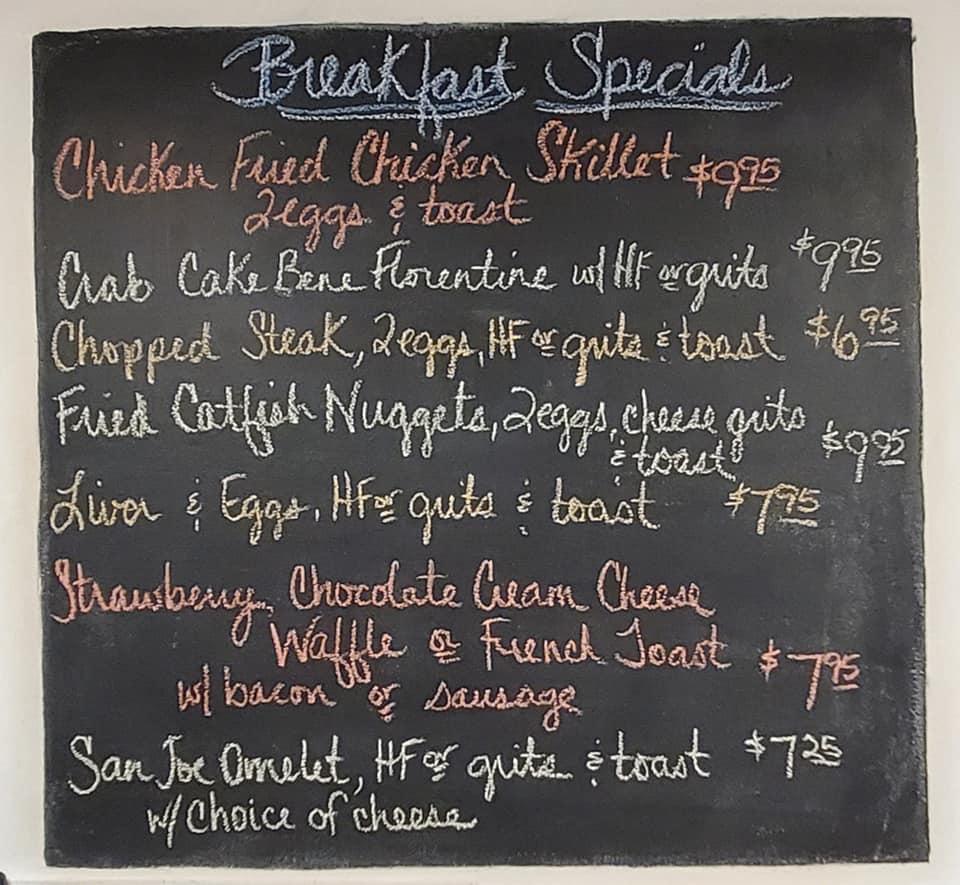 Breakfast Specials
Chicken Fried Chicken Skillet $9.95
2 eggs & toast
Crab Cake Bene Florentine w/ HF or grits $9.95
Chopped Steak, 2 eggs, HF or grits & toast $6.95
Fried Catfish Nuggets, 2 eggs, cheese grits
& toast $9.95
Liver & Eggs, HF or grits & toast $7.95
Strawberry, Chocolate Cream Cheese
Waffle or French Toast $7.95
w/ bacon or sausage
San Joe Omelet, HF or grits & toast $7.25
w/ Choice of cheese